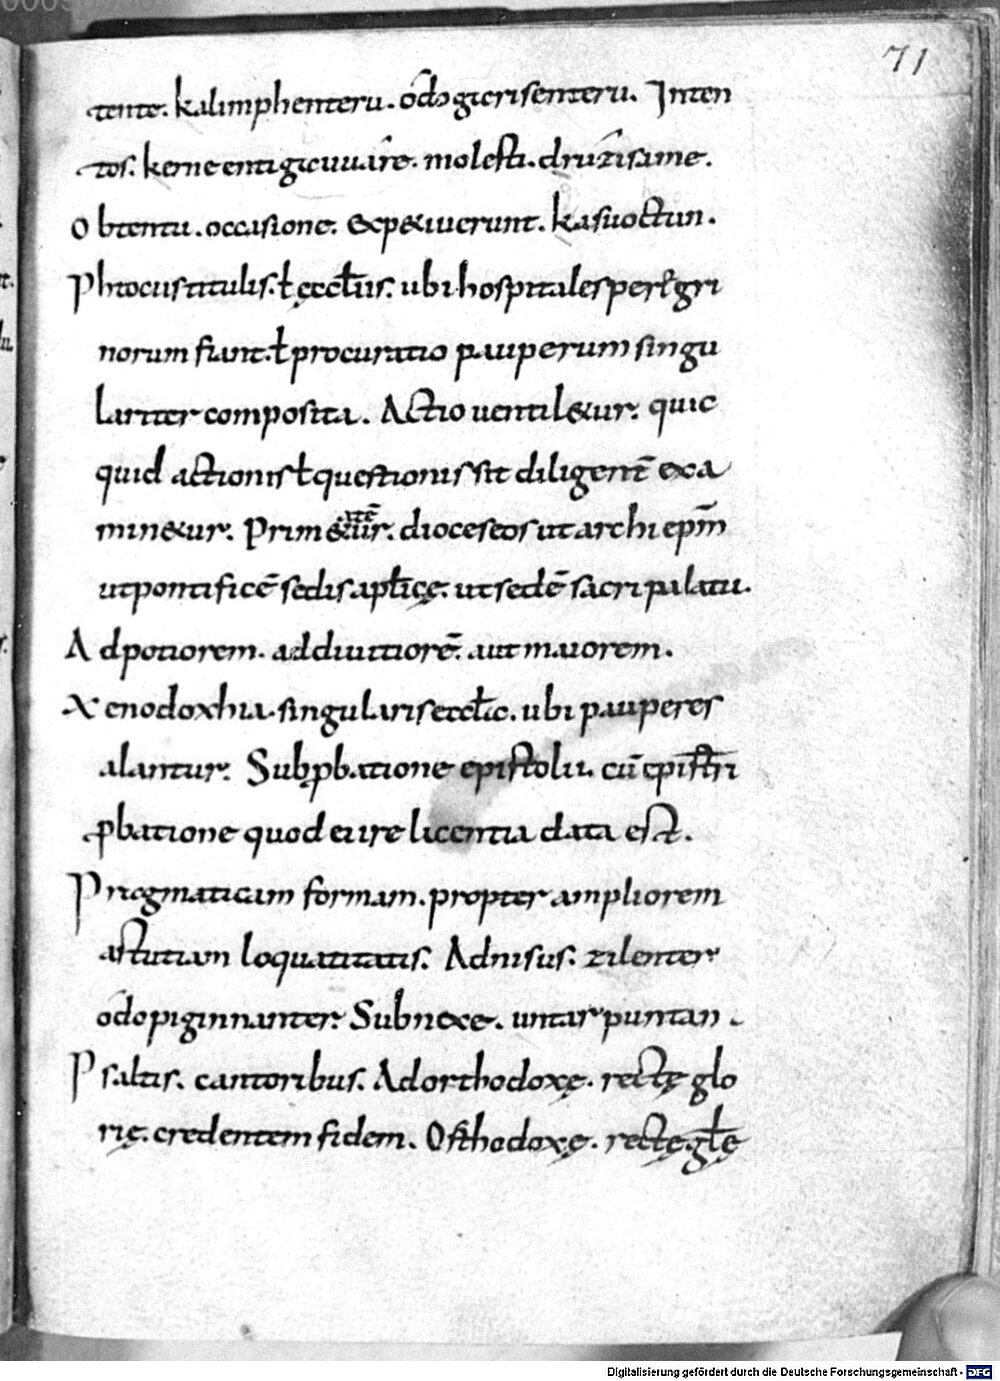 71
tente. kalimphenteru. ōdo gicrisenteru. Inten
tos. kerne enti gicuuāre. molesti. druzisame.
Obtentu. occasione. Exp&iuerunt. kasuoctun.
Phtocustitulis. ł ęccłiis. ubi hospitales peregri
norum fiunt. ł procuratio pauperum singu
lariter composita. Actio uentil&ur. quic
quid actionis ł questionis sit diligent̄ exa
min&ur. Prim& dioceseos ut archiep̄m
ut pontificē sedis aplīcę. ut sedē sacri palatii.
Ad potiorem. ad diuitiorē. aut maiorem.
Xenodoxhia. singularis ecclic. ubi pauperes
alantur. Sub p̱batione epistolii. cū epistri
p̱batione quod ei ire licentia data est.
Pragmaticam formam. propter ampliorem
astutiam loquatitatis. Adnisus. zilenter
ōdo piginnanter. Subnexe. untar puntan.
Psaltis. cantoribus. Ad orthodoxę. rectę glo
rię. credentem fidem. Osthodoxę. rectę głę
Digitalisierung gefördert durch die Deutsche Forschungsgemeinschaft - DFG